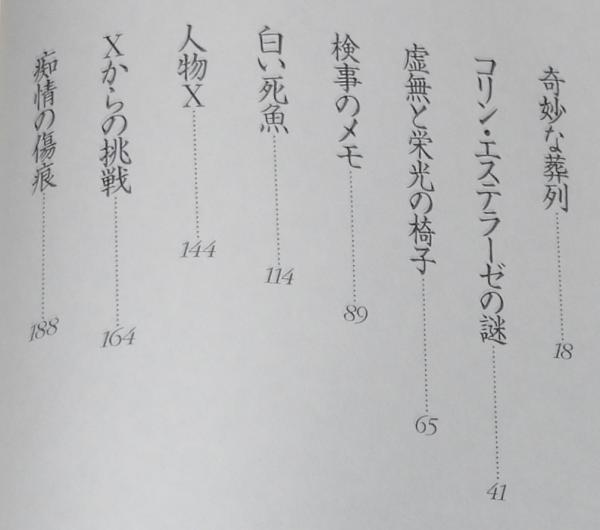 奇妙な葬列……18
コリン・エステラーゼの謎……41
虚無と栄光の椅子……65
検事のメモ……89
白い死魚……114
人物X……144
Xからの挑戦……164
痴情の傷痕……188